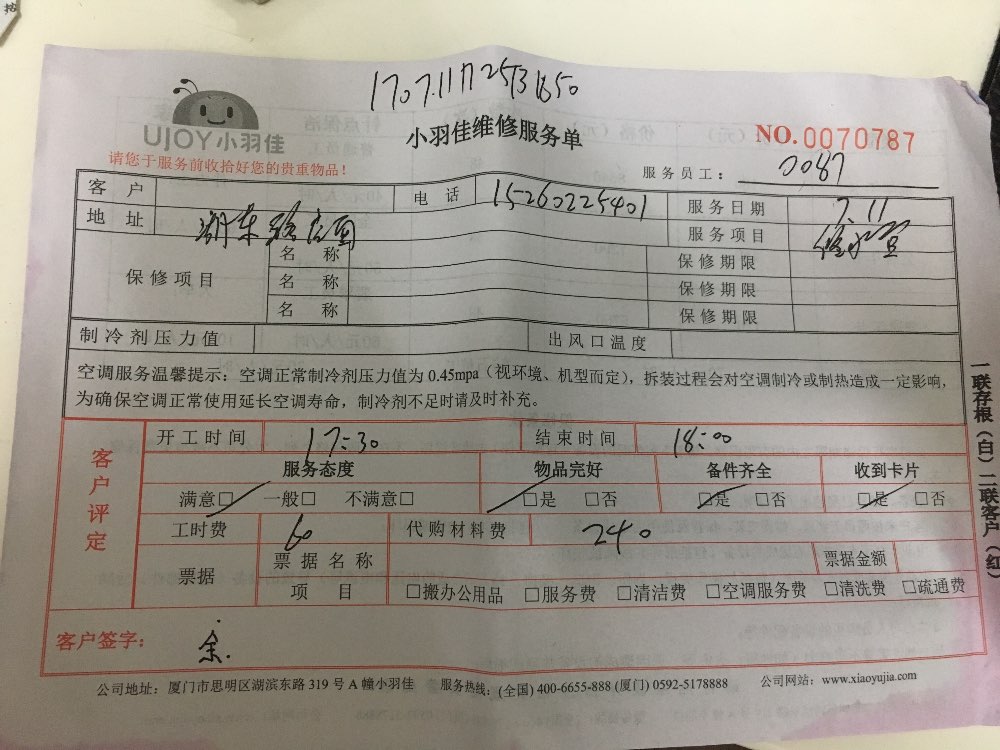 UJOY小羽佳
小羽佳维修服务单
NO.0070787
请您于服务前收拾好您的贵重物品!
服务员工: 0087
客户 电话 15260225401 服务日期 7.11
地址 湖东路店面 服务项目 修水管
保修项目 名称 保修期限
名称 保修期限
名称 保修期限
制冷剂压力值 出风口温度
空调服务温馨提示:空调正常制冷剂压力值为 0.45mpa(视环境、机型而定),拆装过程会对空调制冷或制热造成一定影响,
为确保空调正常使用延长空调寿命,制冷剂不足时请及时补充。
客户评定
开工时间 17:30 结束时间 18:00
服务态度 物品完好 备件齐全 收到卡片
满意□ 一般□ 不满意□ □是 □否 □是 □否 □是 □否
工时费 60 代购材料费 240
票据 票据名称 票据金额
项目 □搬办公用品 □服务费 □清洁费 □空调服务费 □清洗费 □疏通费
客户签字: 余.
公司地址:厦门市思明区湖滨东路 319 号 A 幢小羽佳 服务热线:(全国) 400-6655-888 (厦门) 0592-5178888 公司网站:www.xiaoyujia.com
一联存根(白)二联客户(红)